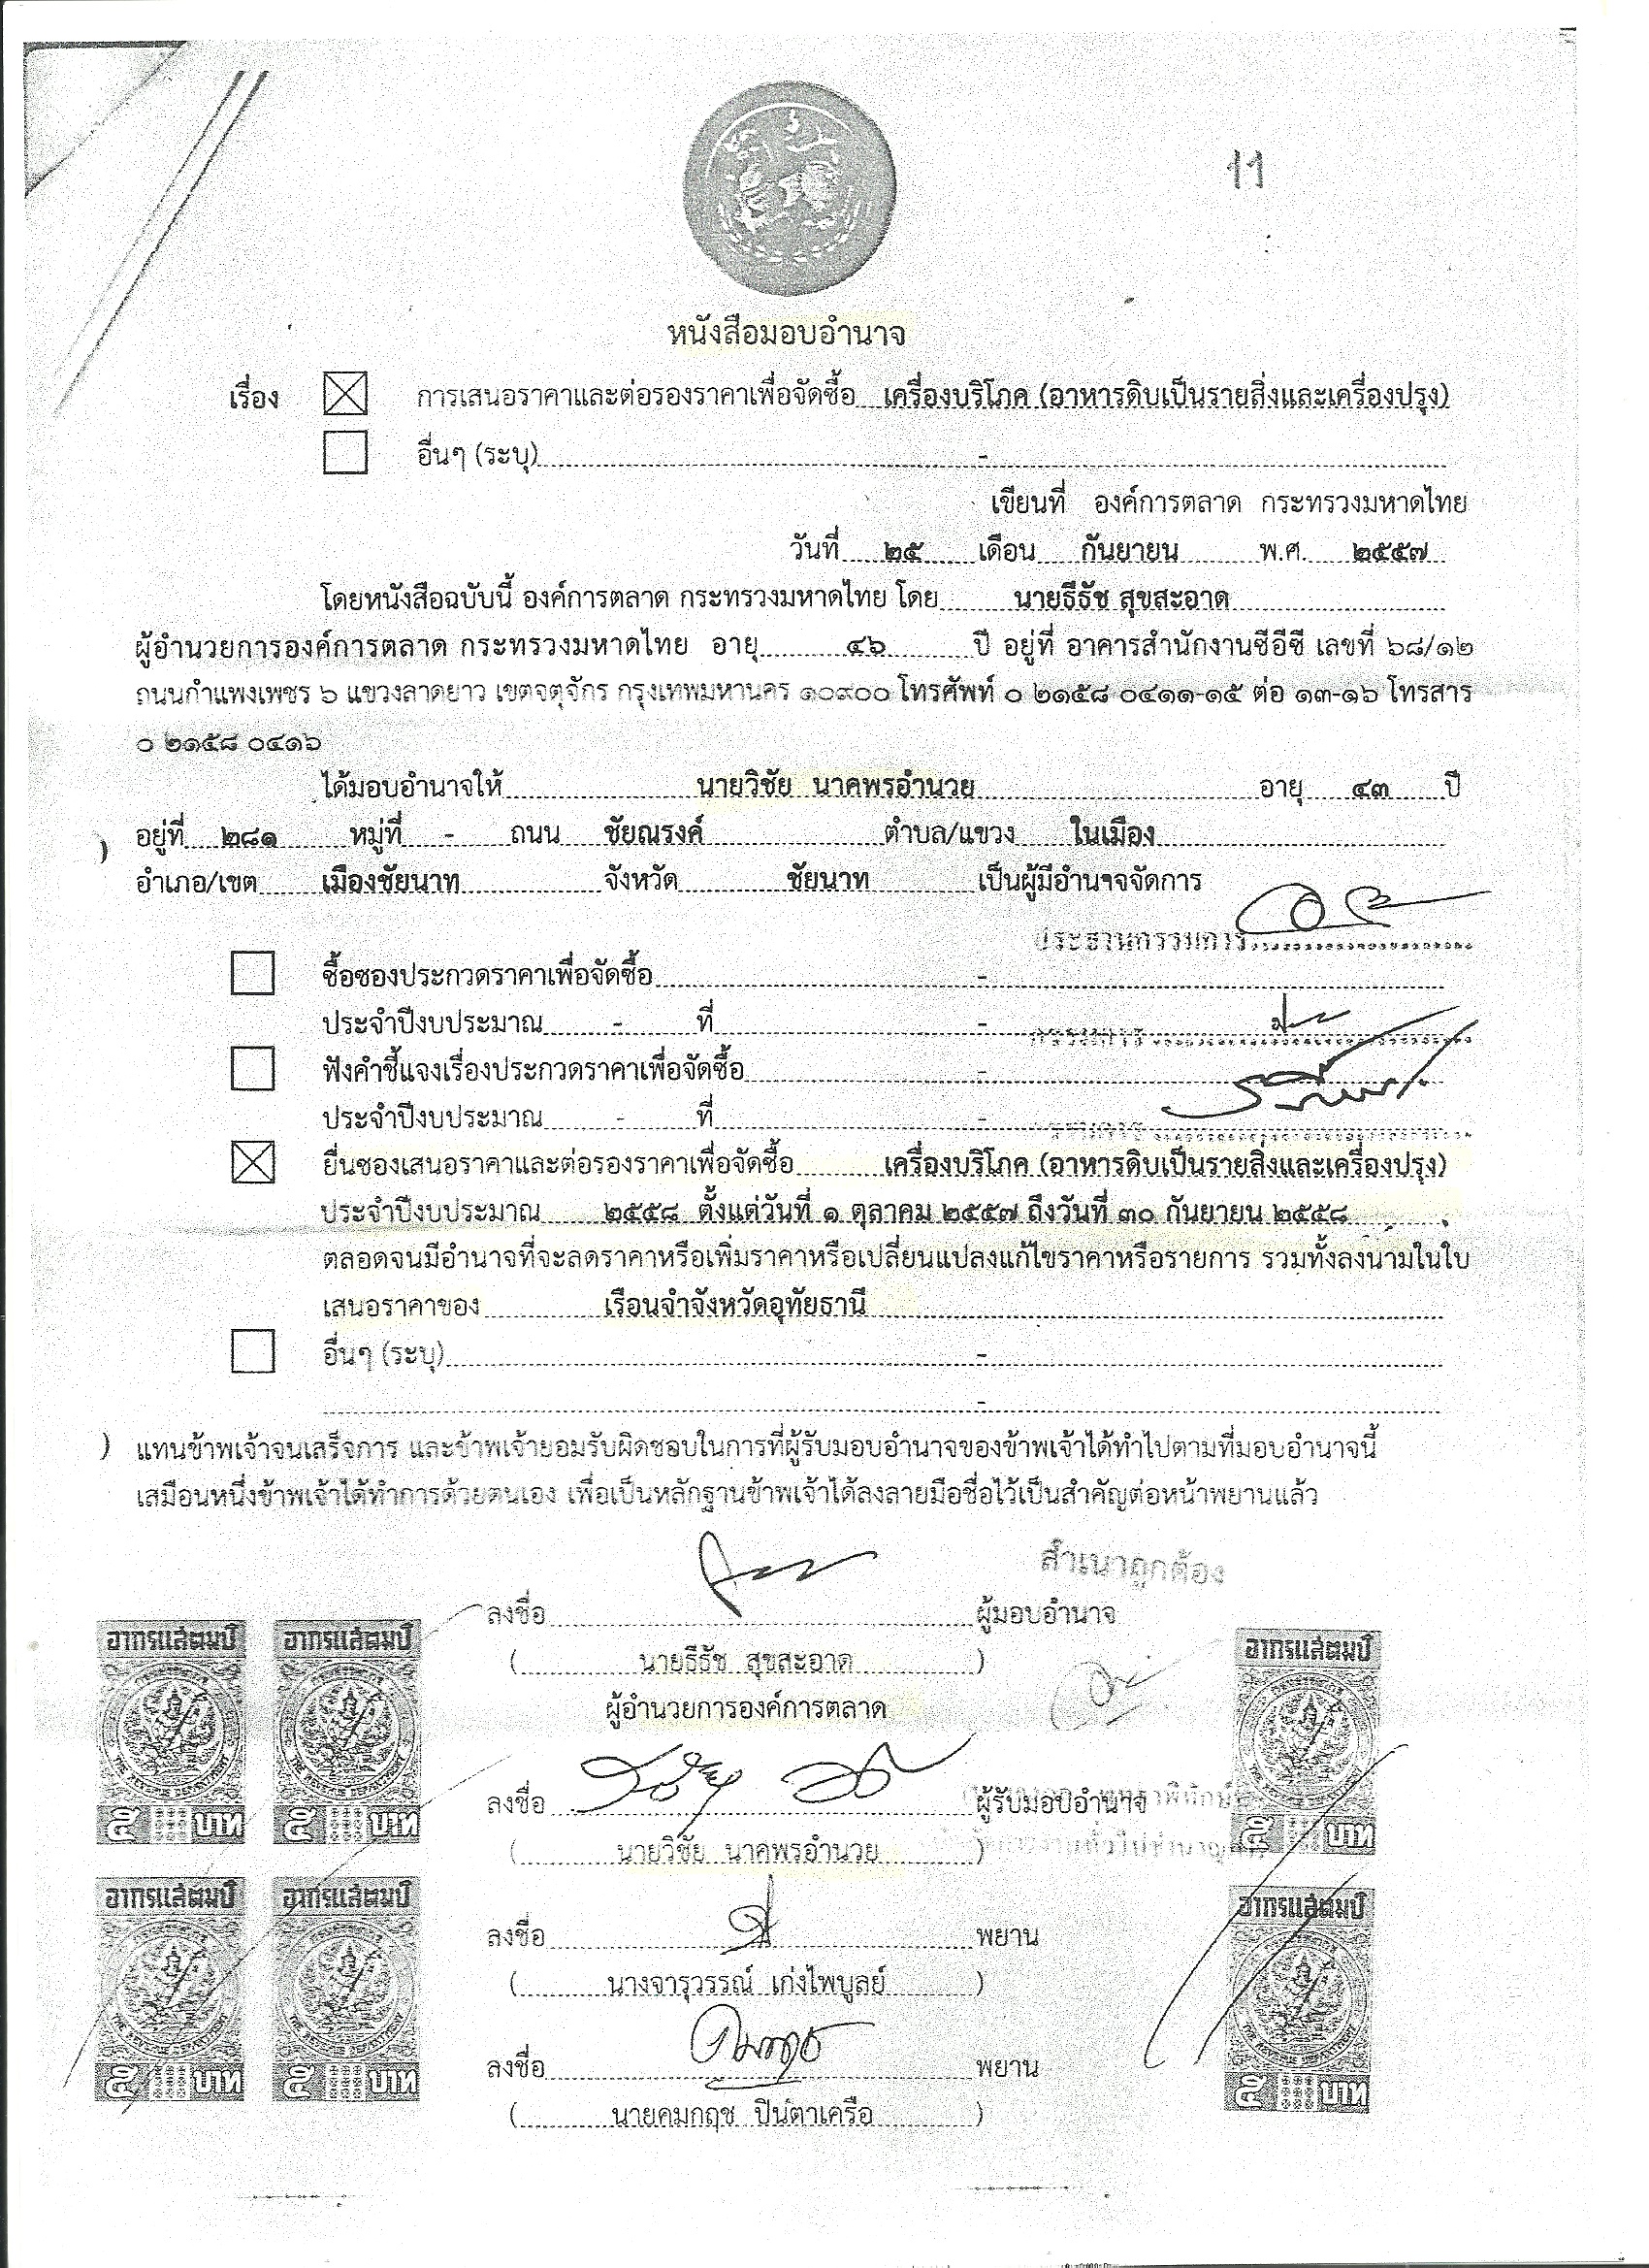 11
หนังสือมอบอำนาจ
เรื่อง การเสนอราคาและต่อรองราคาเพื่อจัดซื้อ เครื่องบริโภค (อาหารดิบเป็นรายสิ่งและเครื่องปรุง)
อื่นๆ (ระบุ) -
เขียนที่ องค์การตลาด กระทรวงมหาดไทย
วันที่ ๒๕ เดือน กันยายน พ.ศ. ๒๕๕๗
โดยหนังสือฉบับนี้ องค์การตลาด กระทรวงมหาดไทย โดย นายธีธัช สุขสะอาด
ผู้อำนวยการองค์การตลาด กระทรวงมหาดไทย อายุ ๔๖ ปี อยู่ที่ อาคารสำนักงานซีอีซี เลขที่ ๖๘/๑๒
ถนนกำแพงเพชร ๖ แขวงลาดยาว เขตจตุจักร กรุงเทพมหานคร ๑๐๙๐๐ โทรศัพท์ ๐ ๒๑๕๘ ๐๔๑๑-๑๕ ต่อ ๑๓-๑๖ โทรสาร
๐ ๒๑๕๘ ๐๔๑๖
ได้มอบอำนาจให้ นายวิชัย นาคพรอำนวย อายุ ๔๓ ปี
อยู่ที่ ๒๘๑ หมู่ที่ - ถนน ชัยณรงค์ ตำบล/แขวง ในเมือง
อำเภอ/เขต เมืองชัยนาท จังหวัด ชัยนาท เป็นผู้มีอำนาจจัดการ
ประธานกรรมการ
ซื้อซองประกวดราคาเพื่อจัดซื้อ -
ประจำปีงบประมาณ - ที่ -
กรรมการ
ฟังคำชี้แจงเรื่องประกวดราคาเพื่อจัดซื้อ -
ประจำปีงบประมาณ - ที่ -
กรรมการ
ยื่นซองเสนอราคาและต่อรองราคาเพื่อจัดซื้อ เครื่องบริโภค (อาหารดิบเป็นรายสิ่งและเครื่องปรุง)
ประจำปีงบประมาณ ๒๕๕๘ ตั้งแต่วันที่ ๑ ตุลาคม ๒๕๕๗ ถึงวันที่ ๓๐ กันยายน ๒๕๕๘
ตลอดจนมีอำนาจที่จะลดราคาหรือเพิ่มราคาหรือเปลี่ยนแปลงแก้ไขราคาหรือรายการ รวมทั้งลงนามในใบ
เสนอราคาของ เรือนจำจังหวัดอุทัยธานี
อื่นๆ (ระบุ) -
-
แทนข้าพเจ้าจนเสร็จการ และข้าพเจ้ายอมรับผิดชอบในการที่ผู้รับมอบอำนาจของข้าพเจ้าได้ทำไปตามที่มอบอำนาจนี้
เสมือนหนึ่งข้าพเจ้าได้ทำการด้วยตนเอง เพื่อเป็นหลักฐานข้าพเจ้าได้ลงลายมือชื่อไว้เป็นสำคัญต่อหน้าพยานแล้ว
สำเนาถูกต้อง
ลงชื่อ ผู้มอบอำนาจ
( นายธีธัช สุขสะอาด )
ผู้อำนวยการองค์การตลาด
ลงชื่อ ผู้รับมอบอำนาจ
( นายวิชัย นาคพรอำนวย )
ลงชื่อ พยาน
( นางจารุวรรณ์ เก่งไพบูลย์ )
ลงชื่อ พยาน
( นายคมกฤช ปินตาเครือ )
อากรแสตมป์ อากรแสตมป์ อากรแสตมป์
บาท บาท บาท
อากรแสตมป์ อากรแสตมป์ อากรแสตมป์
บาท บาท บาท